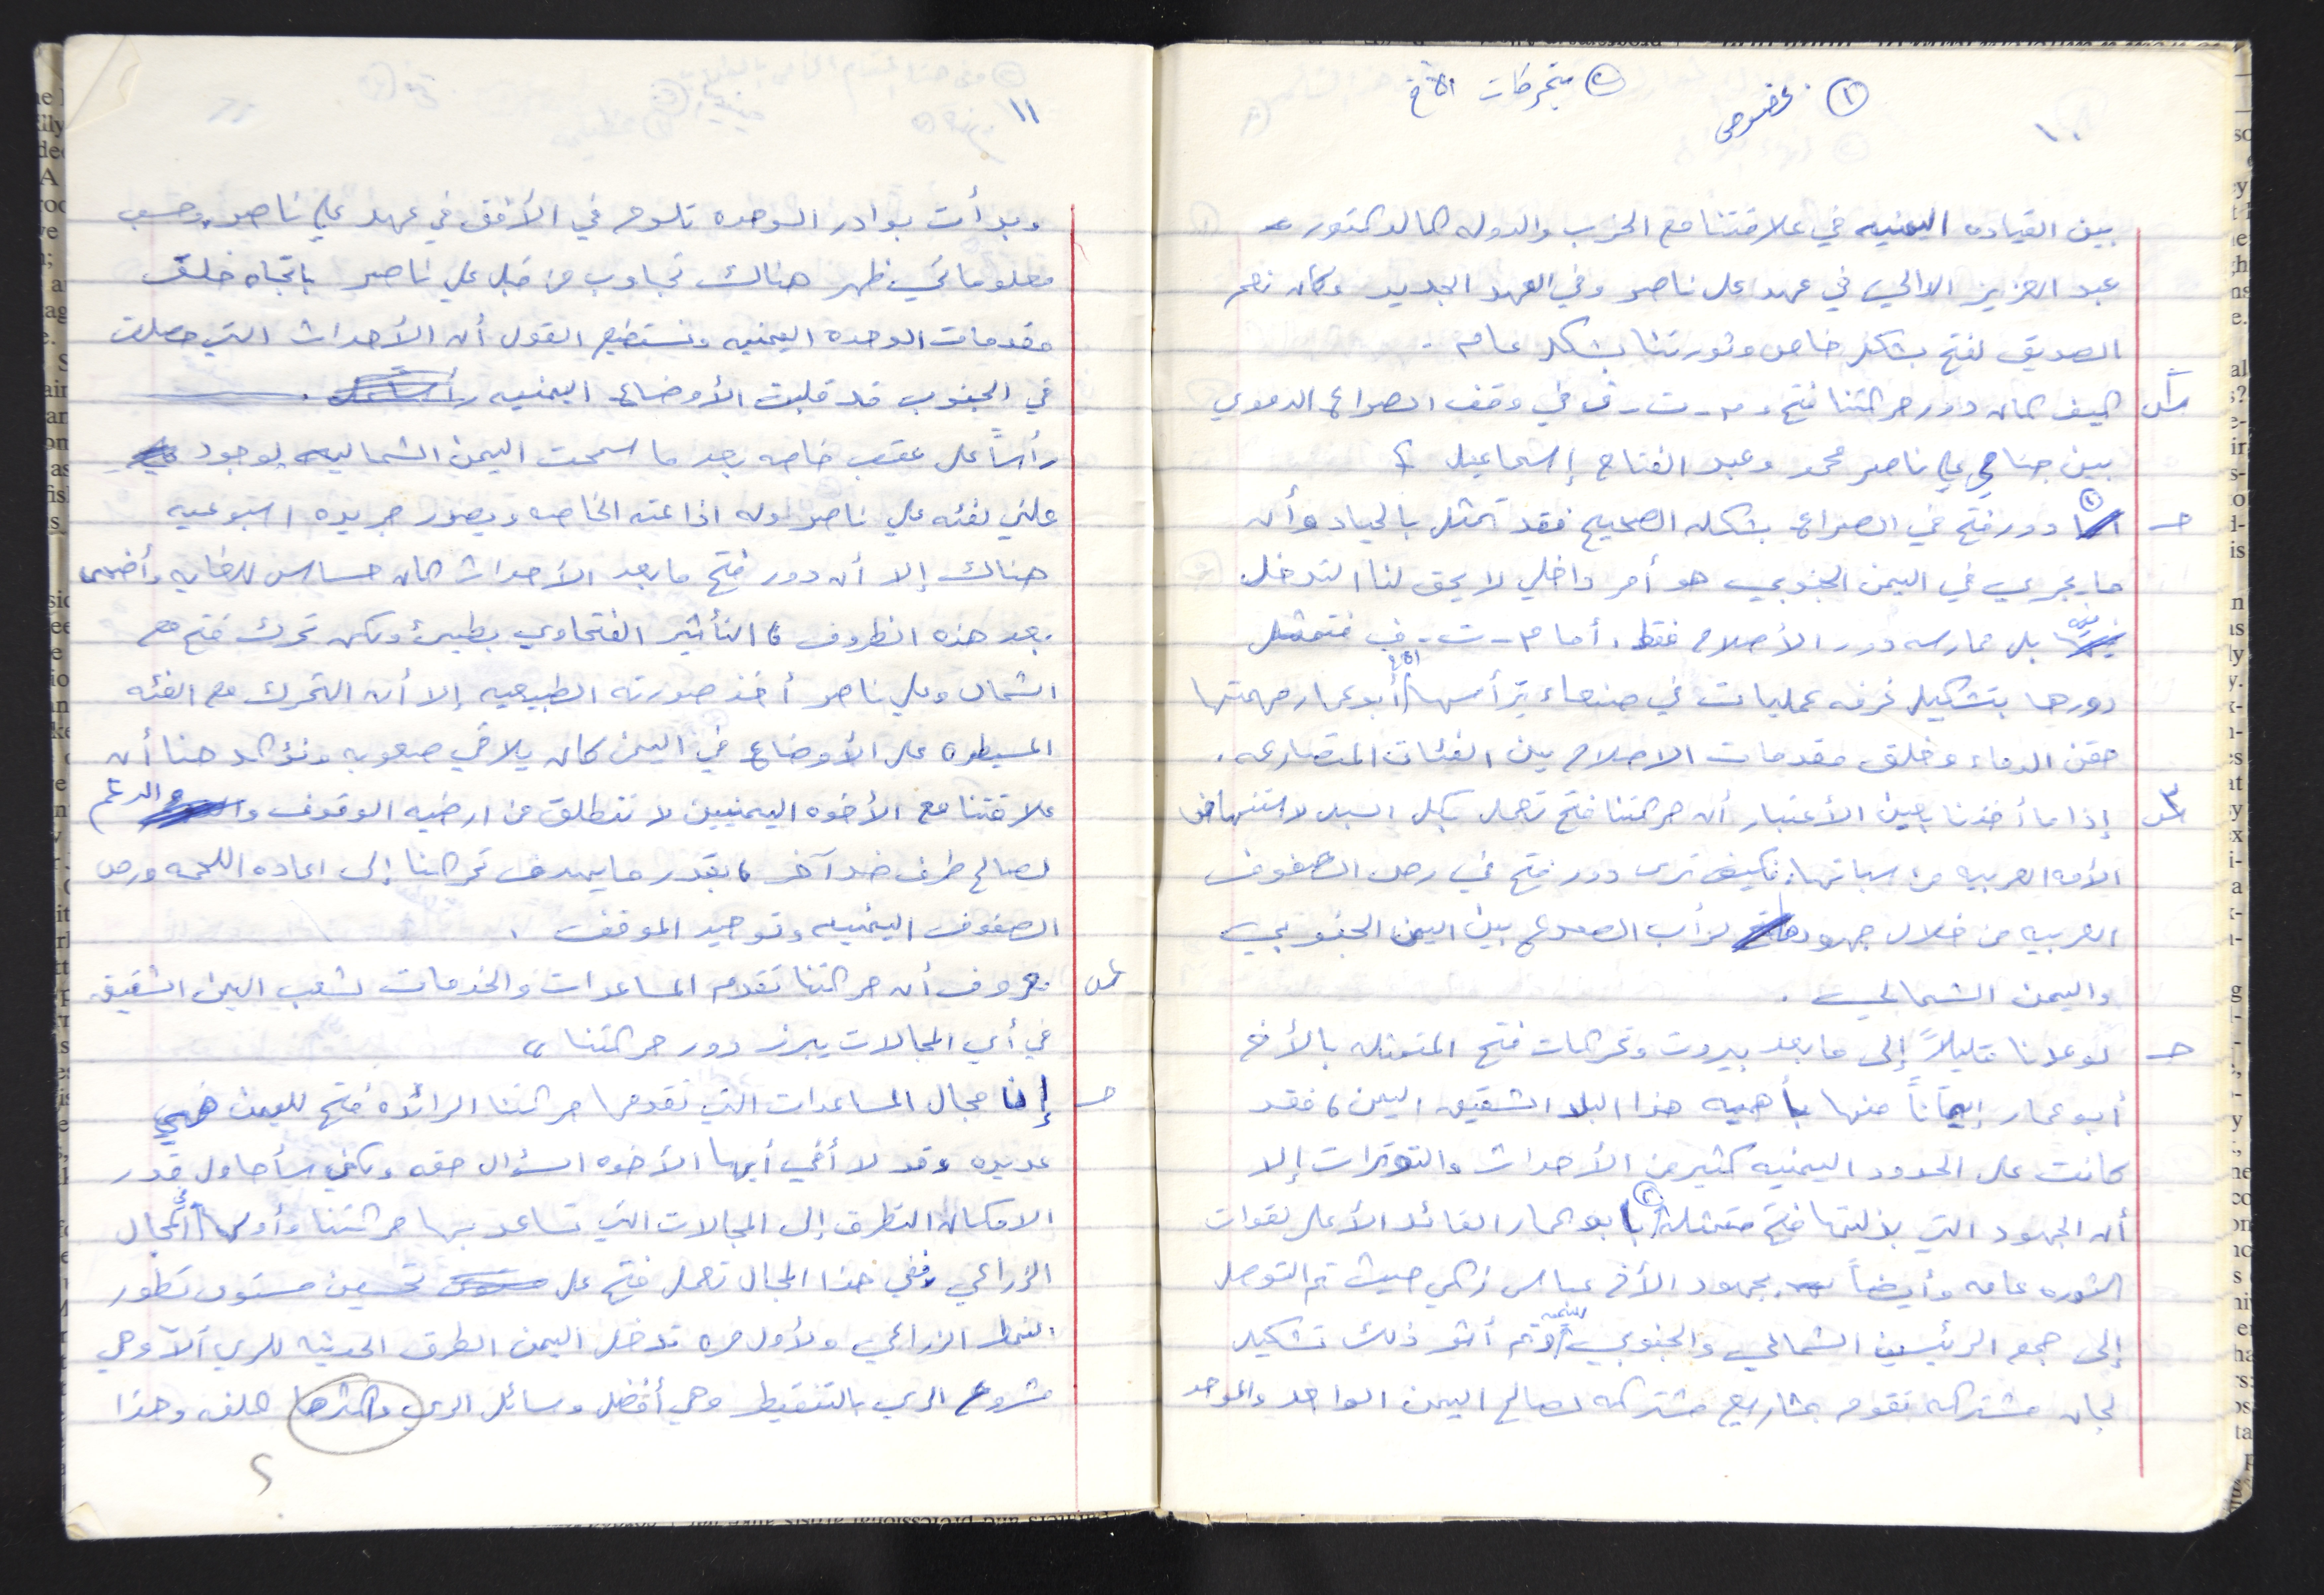 ١٠
① بخصوص
② بتحركات الأخ
بين القياده اليمنيه في علاقتنا مع الحزب والدوله كما الدكتور
عبد العزيز الدالي في عهد علي ناصر وفي العهد الجديد وكان نعم
الصديق لفتح بشكل خاص وثورتنا بشكل عام .
س كيف كان دور حركتنا فتح و م - ت - ف في وقف الصراع الدموي
بين جناحي علي ناصر محمد وعبد الفتاح إسماعيل ؟
جـ ① دور فتح في الصراع بشكله الصحيح فقد تمثل بالحياد وأن
ما يجري في اليمن الجنوبي هو أمر داخلي لا يحق لنا التدخل
فيه بل ممارسه دور الأصلاح فقط . أما م - ت - ف فتمثل
دورها بتشكيل غرفه عمليات في صنعاء يترأسها الأخ أبو عمار مهمتها
حقن الدماء وخلق مقدمات الاصلاح بين الفئات المتصارعه .
س إذا ما أخذنا بعين الأعتبار أن حركتنا فتح تعمل بكل السبل لاستنهاض
الأمه العربيه من سباتها فكيف ترى دور فتح في رص الصفوف
العربيه من خلال جهودها لرأب الصدع بين اليمن الجنوبي
واليمن الشمالي .
جـ لو عدنا قليلاً إلى ما بعد بيروت وتحركات فتح المتمثله بالأخ
أبو عمار إيماناً منها بأهميه هذا البلد الشقيق اليمن ، فقد
كانت على الحدود اليمنيه كثير من الأحداث والتوترات إلا
أن الجهود التي بذلتها فتح متمثله ② بأبو عمار القائد الأعلى لقوات
الثوره عامه وأيضاً بجهود الأخ عباس زكي حيث تم التوصل
إلى جمع الرئيسين الشمالي والجنوبي وتم أثر ذلك تشكيل
لجان مشتركه تقوم بمشاريع مشتركه لصالح اليمن الواحد والموحد
١١
وبدأت بوادر الوحده تلوح في الأفق في عهد علي ناصر وحسب
معلوماتي ظهر هناك تجاوب من قبل علي ناصر باتجاه خلق
مقدمات الوحده اليمنيه ونستطيع القول أن الأحداث التي حصلت
في الجنوب قد قلبت الأوضاع اليمنيه
رأساً على عقب خاصه بعد ما سمحت اليمن الشماليه بوجود
علني لفئه علي ناصر وله اذاعته الخاصه ويصدر جريده اسبوعيه
هناك إلا أن دور فتح ما بعد الأحداث كان حساس للغايه وأضحى
بعد هذه الظروف ، التأثير الفتحاوي بطيئ ولكن تحرك فتح مع
الشمال وعلي ناصر أخذ صورته الطبيعيه إلا أن التحرك مع الفئه
المسيطره على الأوضاع في اليمن كان يلاقي صعوبه ونؤكد هنا أن
علاقتنا مع الأخوه اليمنيين لا تنطلق من ارضيه الوقوف والدعم
لصالح طرف ضد آخر ، بقدر ما يهدف تحركنا إلى اعاده اللحمه ورص
الصفوف اليمنيه وتوحيد الموقف .
س معروف أن حركتنا تقدم المساعدات والخدمات لشعب اليمن الشقيق
في أي المجالات يبرز دور حركتنا ؟
جـ إن مجال المساعدات التي تقدمها حركتنا الرائده فتح لليمن فهي
عديده وقد لا أفي أيها الأخوه السؤال حقه ولكني سأحاول قدر
الامكان التطرق إلى المجالات التي تساعد بها حركتنا وأولها المجال
الزراعي ففي هذا المجال تعمل فتح على تحسين مستوى تطور
النمط الزراعي ولأول مره تدخل اليمن الطرق الحديثه للري ألا وهي
مشروع الري بالتنقيط وهي أفضل وسائل الري واكثرها كلفه وهذا
؟